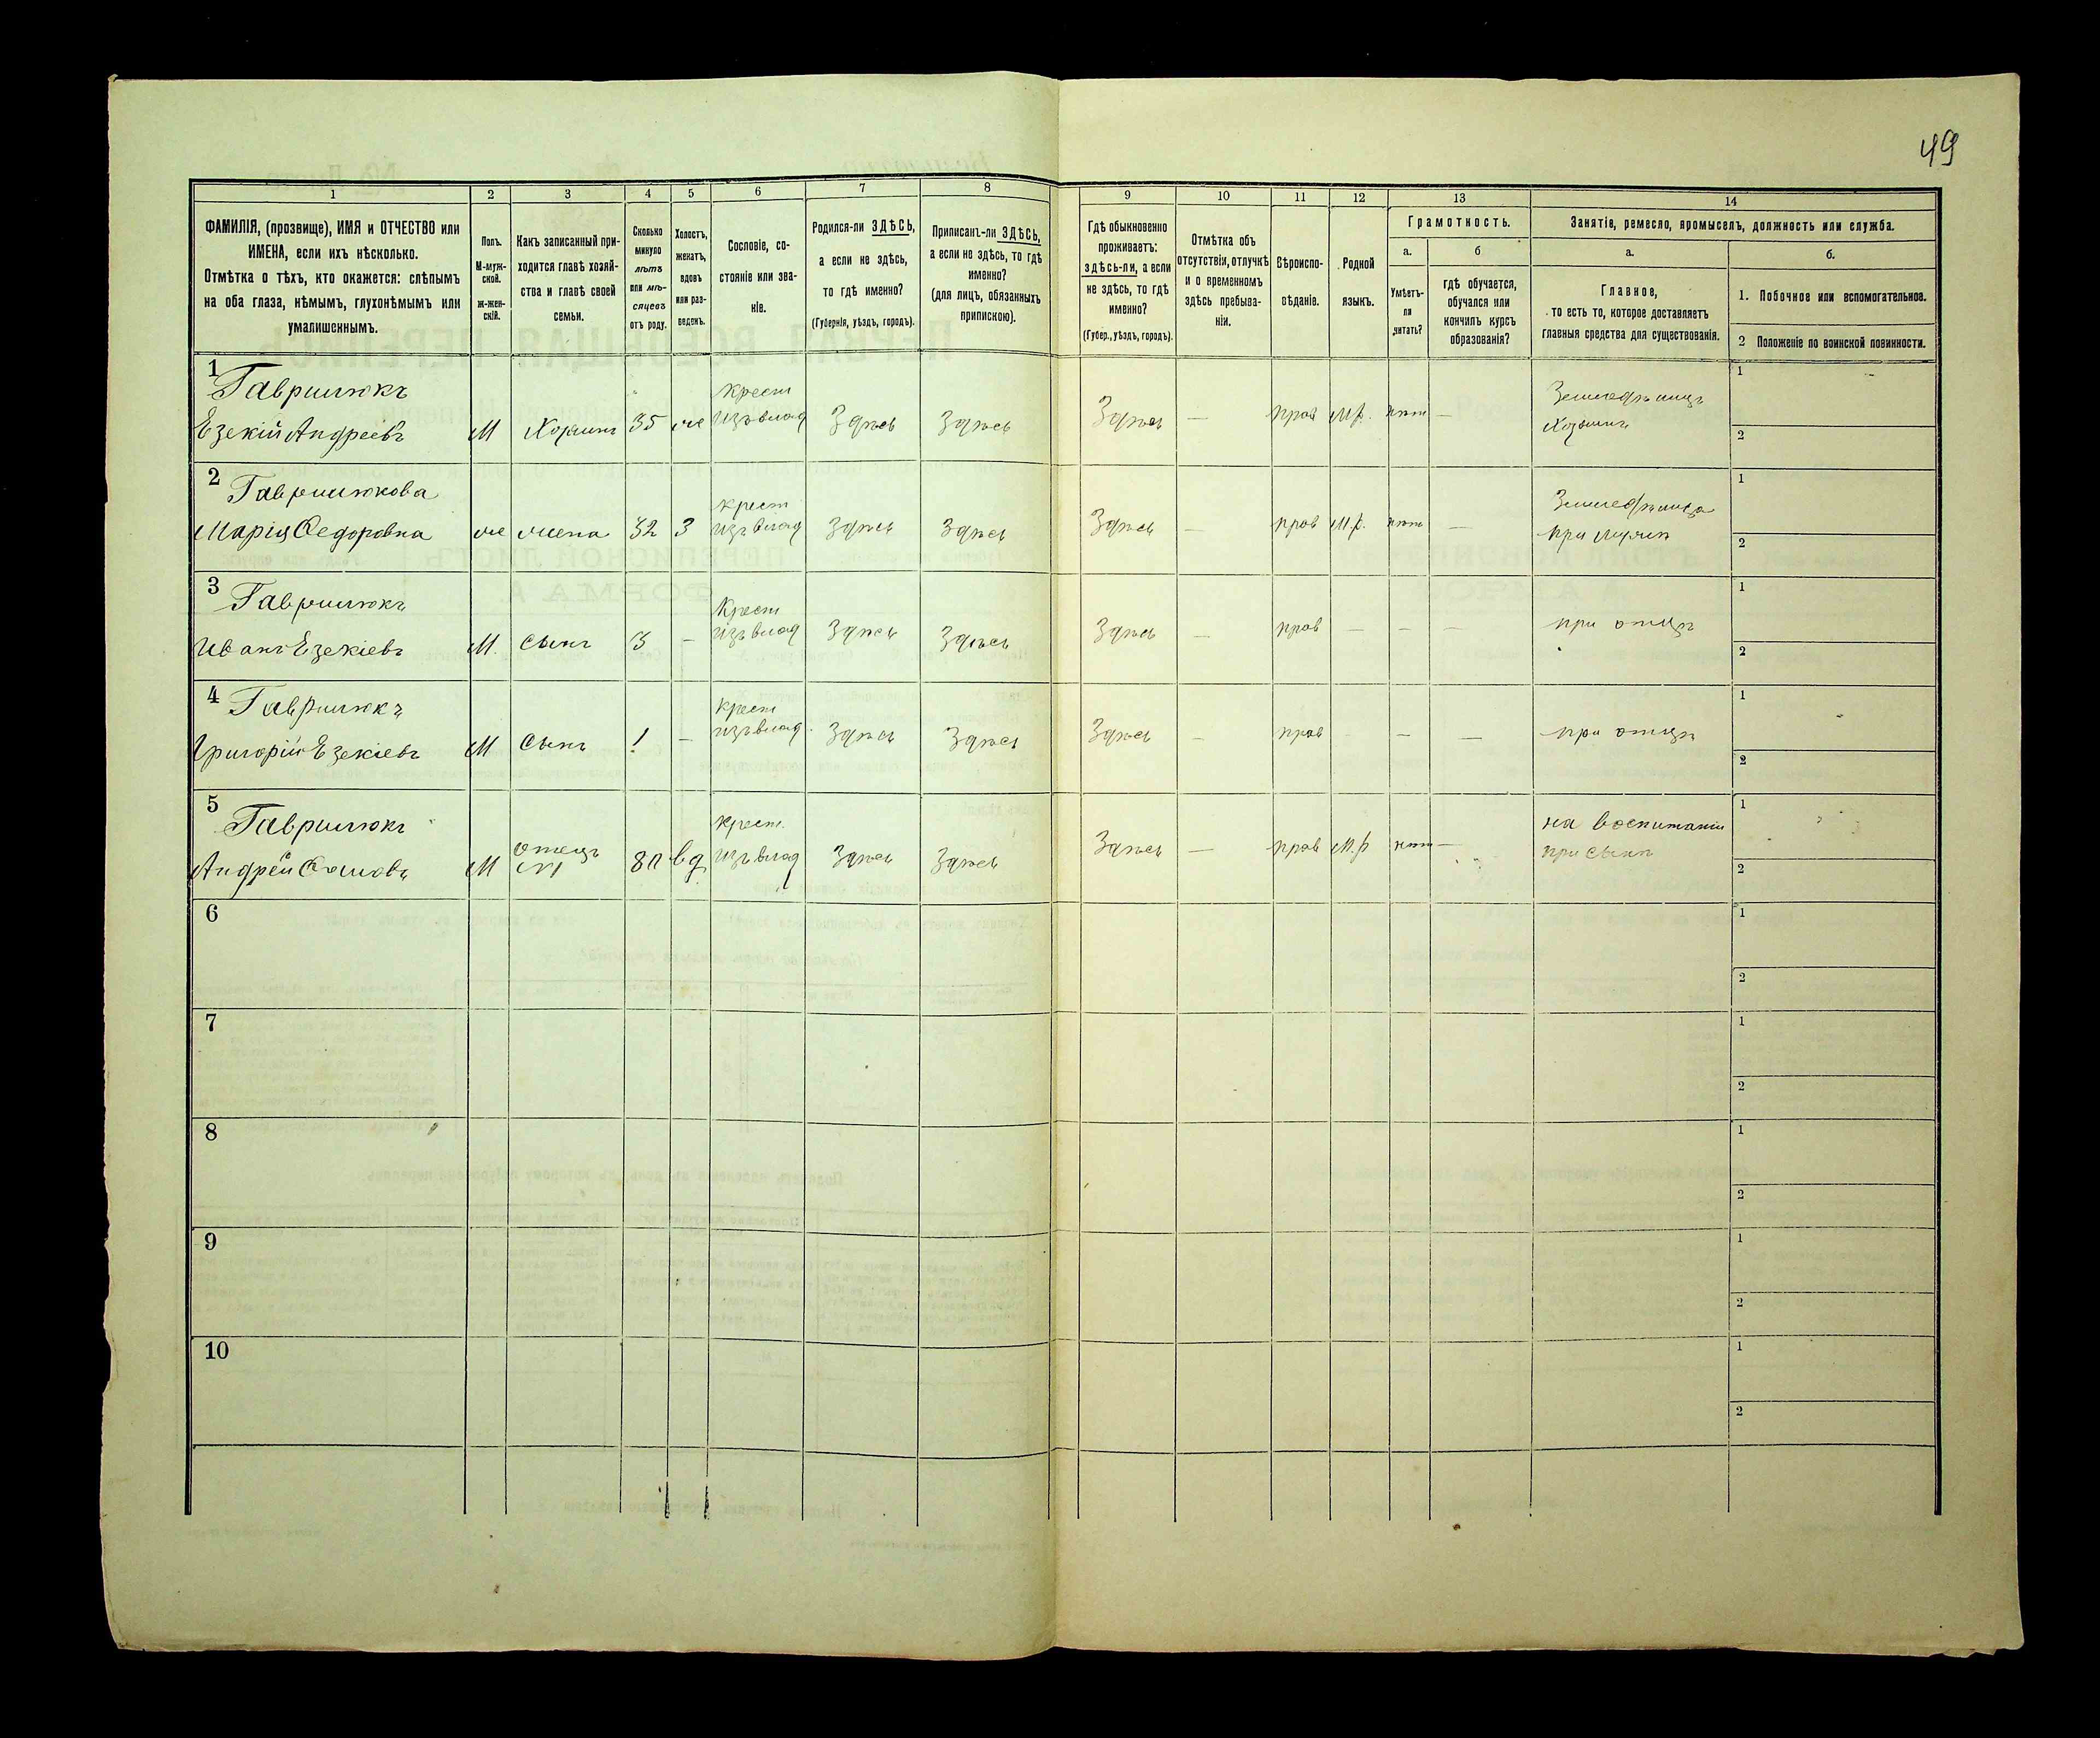 49
1
ФАМИЛІЯ, (прозвище), ИМЯ и ОТЧЕСТВО или
ИМЕНА, если ихъ нѣсколько.
Отмѣтка о тѣхъ, кто окажется: слѣпымъ
на оба глаза, нѣмымъ, глухонѣмымъ или
умалишеннымъ.
2
Полъ.
М-муж-
ской.
ж-жен-
скій.
3
Какъ записанный при-
ходится главѣ хозяй-
ства и главѣ своей
семьи.
4
Сколько
минуло
лѣтъ
или мѣ-
сяцевъ
отъ роду.
5
Холостъ,
женатъ,
вдовъ
или раз-
веденъ.
6
Сословіе, со-
стояніе или зва-
ніе.
7
Родился-ли ЗДѢСЬ,
а если не здѣсь,
то гдѣ именно?
(Губернія, уѣздъ, городъ).
8
Приписанъ-ли ЗДѢСЬ,
а если не здѣсь, то гдѣ
именно?
(для лицъ, обязанныхъ
припискою).
9
Гдѣ обыкновенно
проживаетъ:
здѣсь-ли, а если
не здѣсь, то гдѣ
именно?
(Губер., уѣздъ, городъ).
10
Отмѣтка объ
отсутствіи, отлучкѣ
и о временномъ
здѣсь пребыва-
ніи.
11
Вѣроиспо-
вѣданіе.
12
Родной
языкъ.
13
Грамотность.
а.
Умѣетъ-
ли
читать?
б
гдѣ обучается,
обучался или
кончилъ курсъ
образованія?
14
Занятіе, ремесло, промыселъ, должность или служба.
а.
Главное,
то есть то, которое доставляетъ
главныя средства для существованія.
б.
1. Побочное или вспомогательное.
2 Положеніе по воинской повинности.
1
Гаврилюкъ
Езекій Андреевъ
М
Хозяинъ
35
же
крест
изъ влад
Здѣсь
Здѣсь
Здѣсь
—
прав
М.р.
нѣт
—
Земледѣлецъ
Хозяинъ
1
2
2
Гаврилюкова
Марія Федоровна
же
жена
32
З
крест
изъ влад
Здѣсь
Здѣсь
Здѣсь
—
прав
М.р.
нѣт
—
Земледѣлица
при мужѣ
1
2
3
Гаврилюкъ
Иванъ Езекіевъ
М.
Сынъ
3
—
Крест
изъ влад
Здѣсь
Здѣсь
Здѣсь
—
прав
—
—
—
при отцѣ
1
2
4
Гаврилюкъ
Григорій Езекіевъ
М
Сынъ
1
—
крест
изъ влад.
Здѣсь
Здѣсь
Здѣсь
—
прав
—
—
—
при отцѣ
1
2
5
Гаврилюкъ
Андрей
М
отецъ
80
вд
крест.
изъ влад
Здѣсь
Здѣсь
Здѣсь
—
прав
М.р
нѣт
—
на воспитаніи
при сынѣ
1
2
6
1
2
7
1
2
8
1
2
9
1
2
10
1
2